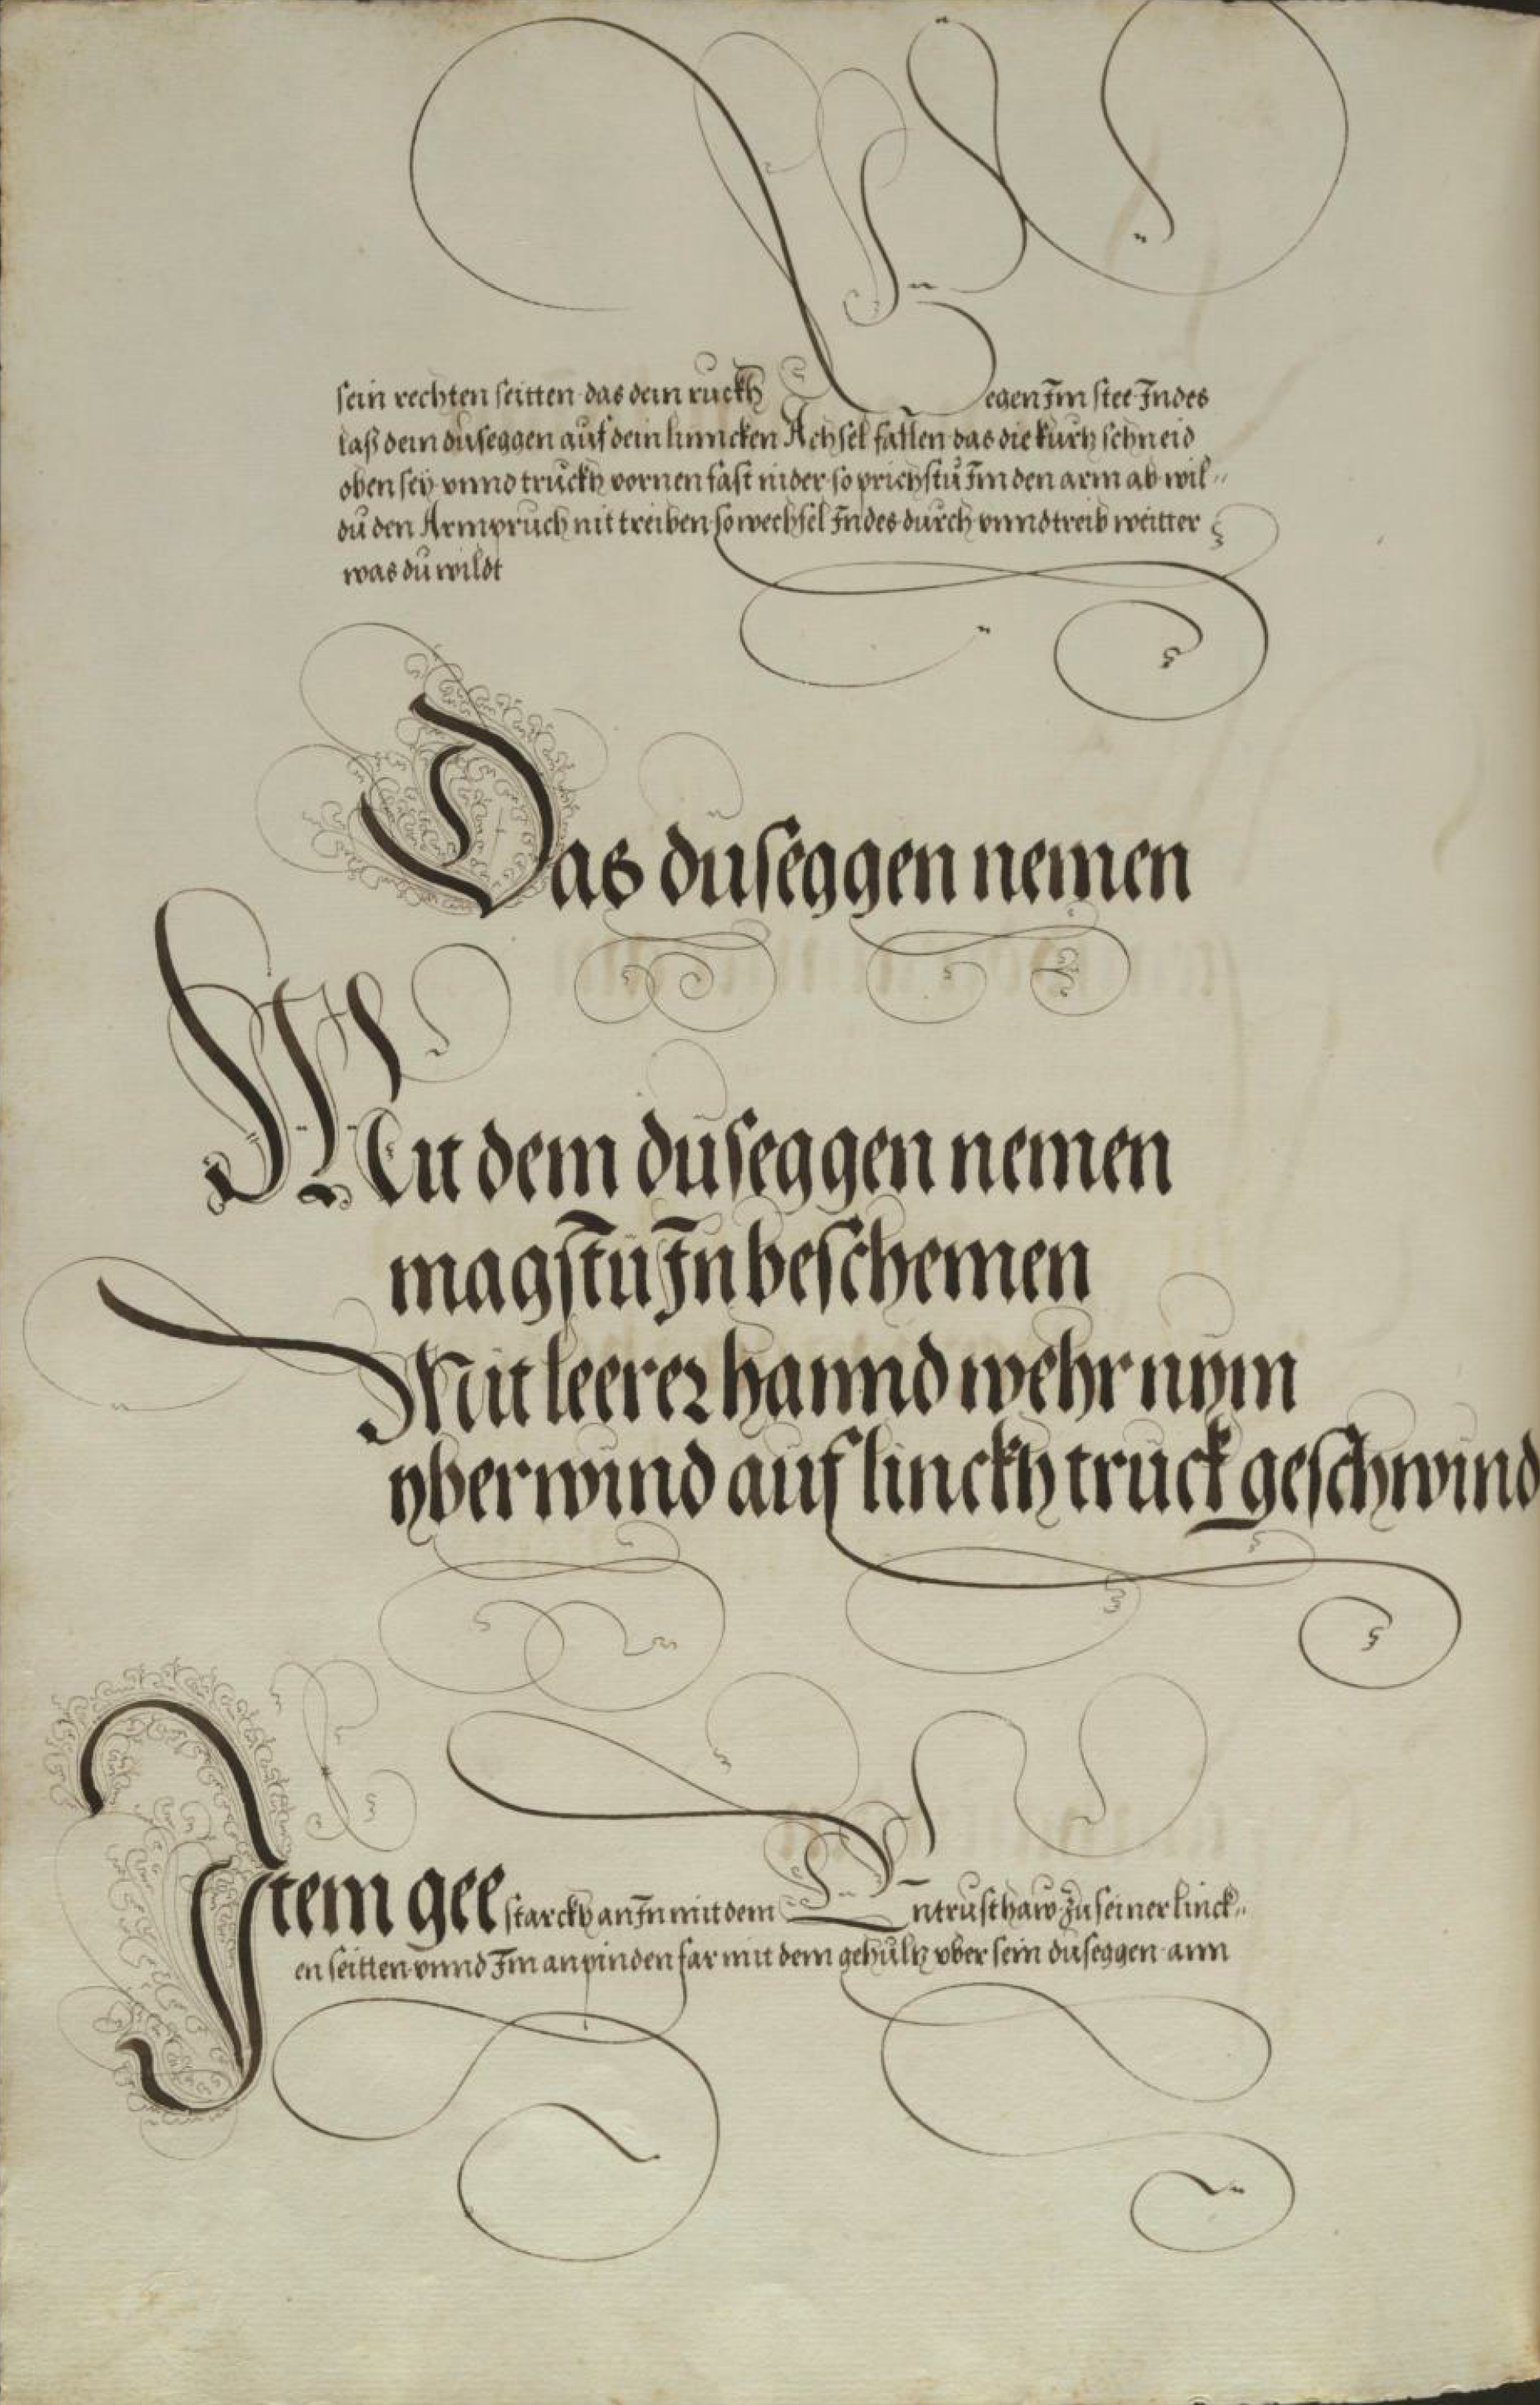 sein rechten seitten das dein ruckh Gegen Im stee Indes
laß dein duseggen auf dein linncken Achsel fallen das die kurtz schneid
oben sey vnnd truckh vornen fast nider so prichstu Im den arm ab wil„
du den Armpruch nit treiben so wechsel Indes durch vnnd treib weitter
was du wildt
Das duseggen nemen
Mit dem duseggen nemen
magstu In beschemen
Mit leerer hannd wehr nym
yberwind auf linckh truck geschwind
Item gee starckh an In mit dem Entrusthaw zu seiner linck„
en seitten vnnd Im anpinden far mit dem gehultz vber sein duseggen ann